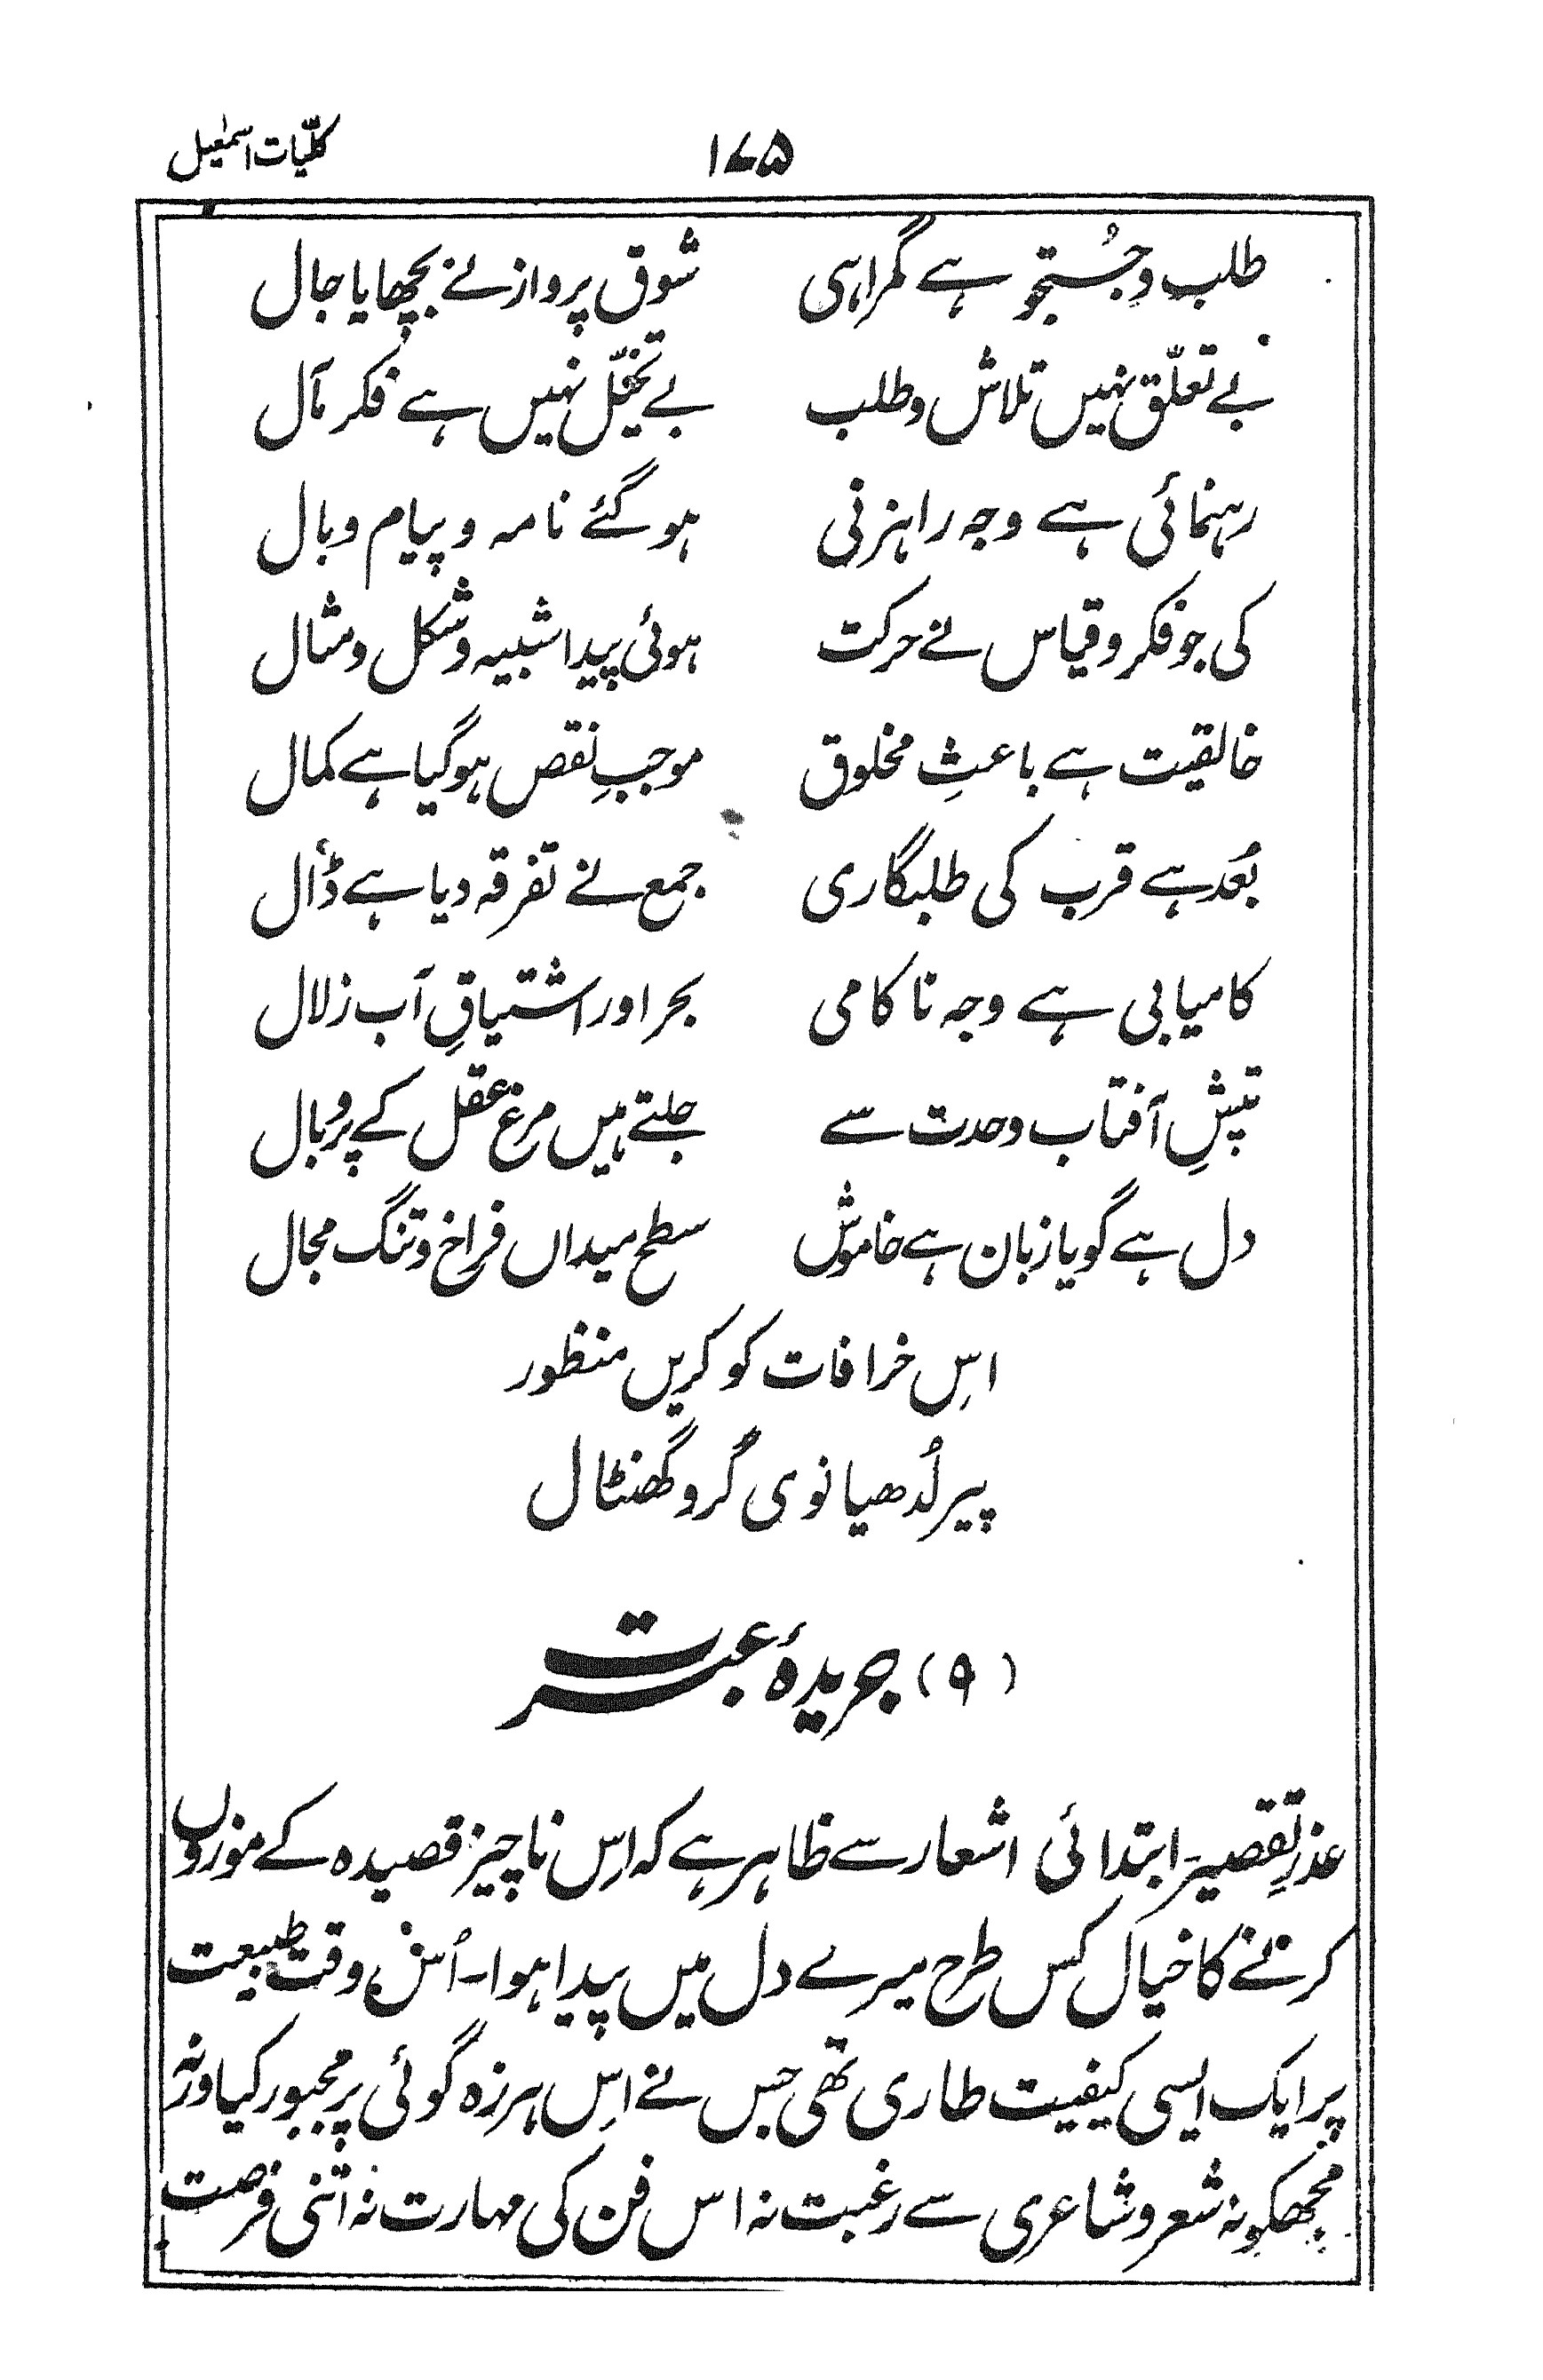 کلّیات اسمٰعیل ۱۷۵
طلب و جُستجو ہے گمراہی شوق پرواز نے بچھایا جال
بے تعلّق نہیں تلاش و طلب بے تخیّل نہیں ہے فکر مآل
رہنمائی ہے وجہ راہزنی ہو گئے نامہ و پیام وبال
کی جو فکر و قیاس نے حرکت ہوئی پیدا شبیہ و شکل و مثال
خالقیت ہے باعثِ مخلوق موجبِ نقص ہو گیا ہے کمال
بُعد ہے قرب کی طلبگاری جمع نے تفرقہ دیا ہے ڈال
کامیابی ہے وجہ ناکامی بحر اور اشتیاقِ آب زلال
تپشِ آفتاب وحدت سے جلتے ہیں مرغ عقل کے پر و بال
دل ہے گویا زبان ہے خاموش سطح میداں فراخ و تنگ مجال
اِس خرافات کو کریں منظور
پیر لُدھیانوی گُرو گھنٹال
(۹) جریدۂ عبرت
عذرِ تقصیر۔ ابتدائی اشعار سے ظاہر ہے کہ اِس ناچیز قصیدہ کے موزوں
کرنے کا خیال کس طرح میرے دل میں پیدا ہوا۔ اُس وقت طبیعت
پر ایک ایسی کیفیت طاری تھی جس نے اِس ہرزہ گوئی پر مجبور کیا ورنہ
مجھکو نہ شعر و شاعری سے رغبت نہ اس فن کی مہارت نہ اتنی فرصت